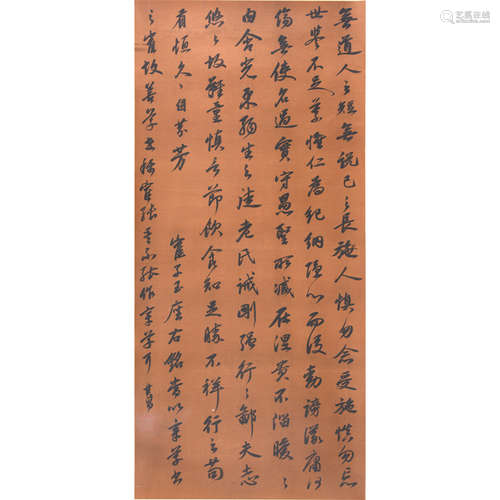 無道人之短無說己之長施人慎勿念受施慎勿忘
世譽不足慕惟仁為紀綱隱心而後動謗議庸何
傷無使名過實守愚聖所臧在涅貴不淄曖〻
內含光柔弱生之徒老氏誡剛強行〻鄙夫志
悠〻故難量慎言節飲食知足勝不祥行之苟
有恒久〻自芬芳
崔子玉座右銘嘗以章草書
之崔故善草書稱崔張 作章草 其昌